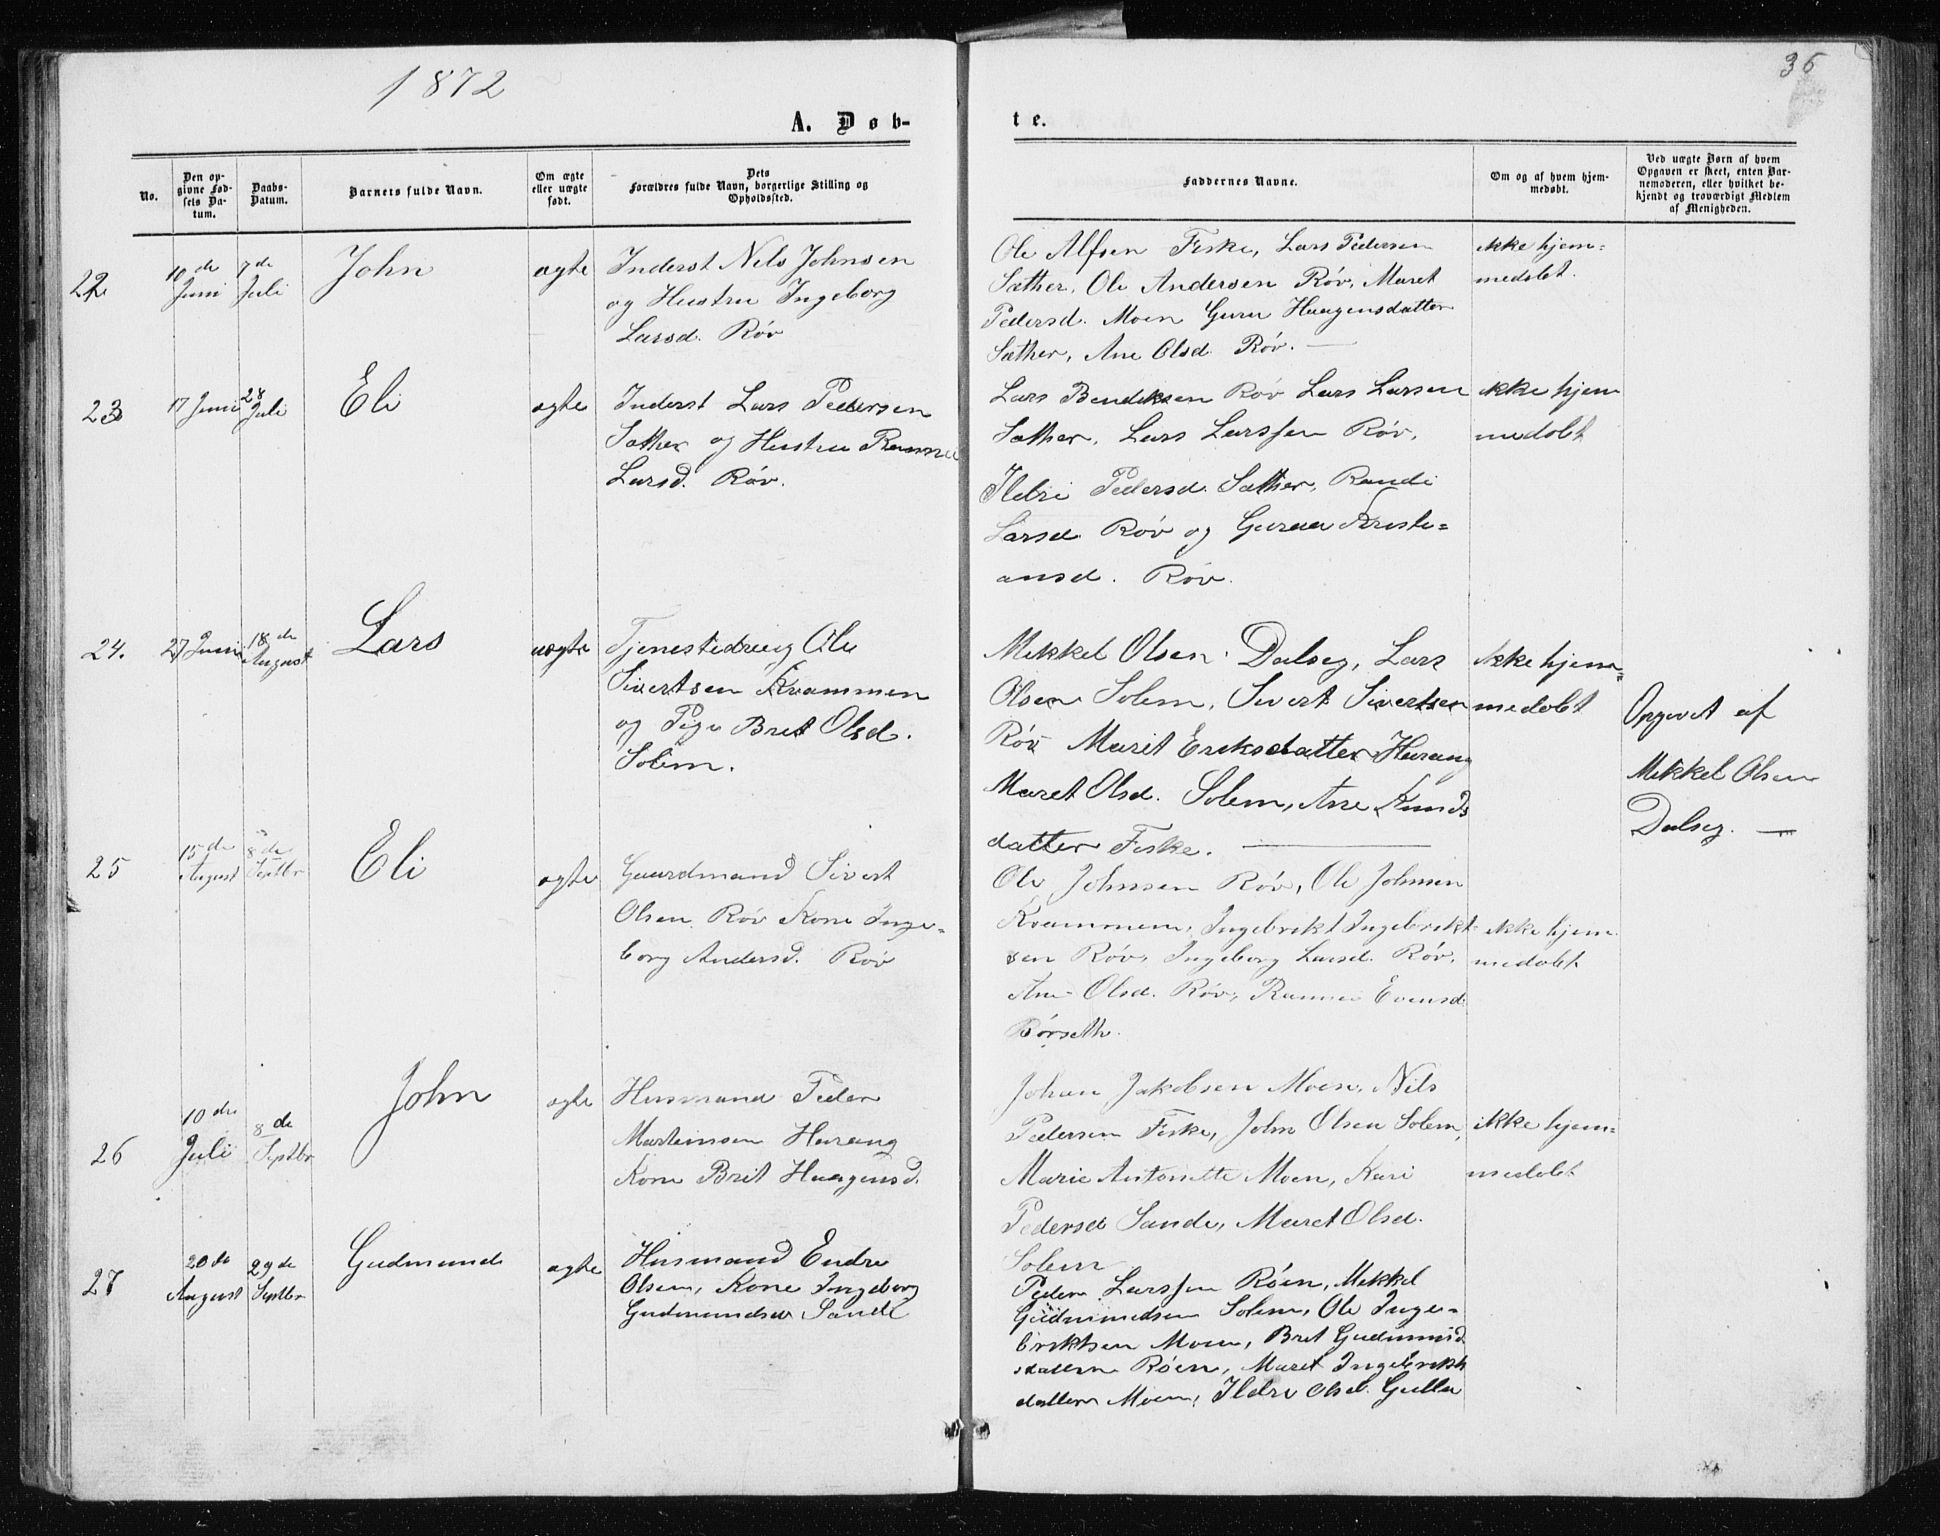 1872
36
A. Døb-
te.
No.
Den op-
givne Fød-
sels Da-
tum.
Daabs-
Datum.
Barnets fulde Navn.
Om ægte
eller uægte
født.
Dets
Forældres fulde Navn, borgerlige Stilling og
Opholdssted.
Faddernes Navne.
Om og af hvem hjem-
medøbt.
Ved uægte Børn af hvem
Opgaven er skeet, enten Bar-
nemoderen, eller hvilket be-
kjendt og troværdigt Medlem
af Menigheden.
22
10 de
Juni
7 de
Juli
John
ægte
Inderst Nils Johnsen
og Hustru Ingeborg
Larsd. Röv
Ole Alfsen Fiske, Lars Pedersen
Sæther, Ole Andersen Röv, Maret
Pedersd. Moen Guru Haagensdatter
Sæther, Ane Olsd. Röv. —
ikke hjem=
medöbt.
23
17 Juni
28
Juli
Eli
ægte
Inderst Lars Pedersen
Sæther og Hustru
Larsd. Röv.
Lars Bendiksen Röv Lars Larsen
Sæther, Lars Larssen Röv,
Ildri Pedersd. Sæther, Randi
Larsd. Röv og Guruu Kristi=
ansd. Röv.
ikke hjem
medöbt
24.
27 Juni
18 de
August
Lars
uægte
Tjenestedreng Ole
Sivertsen Kvammen
og Pige Brit Olsd.
Solem.
Mikkel Olsen Dalseg, Lars
Olsen Solem, Sivert Sivertsen
Röv Marit Eriksdatter Harang
Maret Olsd. Solem, Ane Knuds
datter Fiske. —
ikke hjem=
medöbt
Opgivet af
Mikkel Olsen
Dalseg. —
25
15 de
August
8 de
Septbr
Eli
ægte
Gaardmand Sivert
Olsen Röv Kone Inge=
borg Andersd. Röv
Ole Johnsen Röv, Ole Johnsen
Kvammem, Ingebrikt Ingebrikt
sen Röv, Ingeborg Larsd. Röv,
Ane Olsd. Röv, Evensd.
Börseth.
ikke hjem
medöbt
26
10 de
Juli
8 de
Septbr
John
ægte
Husmand Peder
Martinsen Harang
Kone Brit Haagensd.
Johan Jakobsen Moen, Nils
Pedersen Fiske, John Olsen Solem,
Marie Antonette Moen, Kari
Pedersd Sande, Maret Olsd.
Solem
ikke hjem=
medöbt
27
20 de
August
29 de
Septbr
Gudmund
ægte
Husmand Endre
Olsen, Kone Ingeborg
Gudmundsd Sande
Peder Larssen Röen, Mikkel
Gudmundsen Solem, Ole Inge=
briktsen Moen, Brit Gudmund
sdatter Röen, Maret Ingebrikts
datter Moen, Ildri Olsd. Gulla